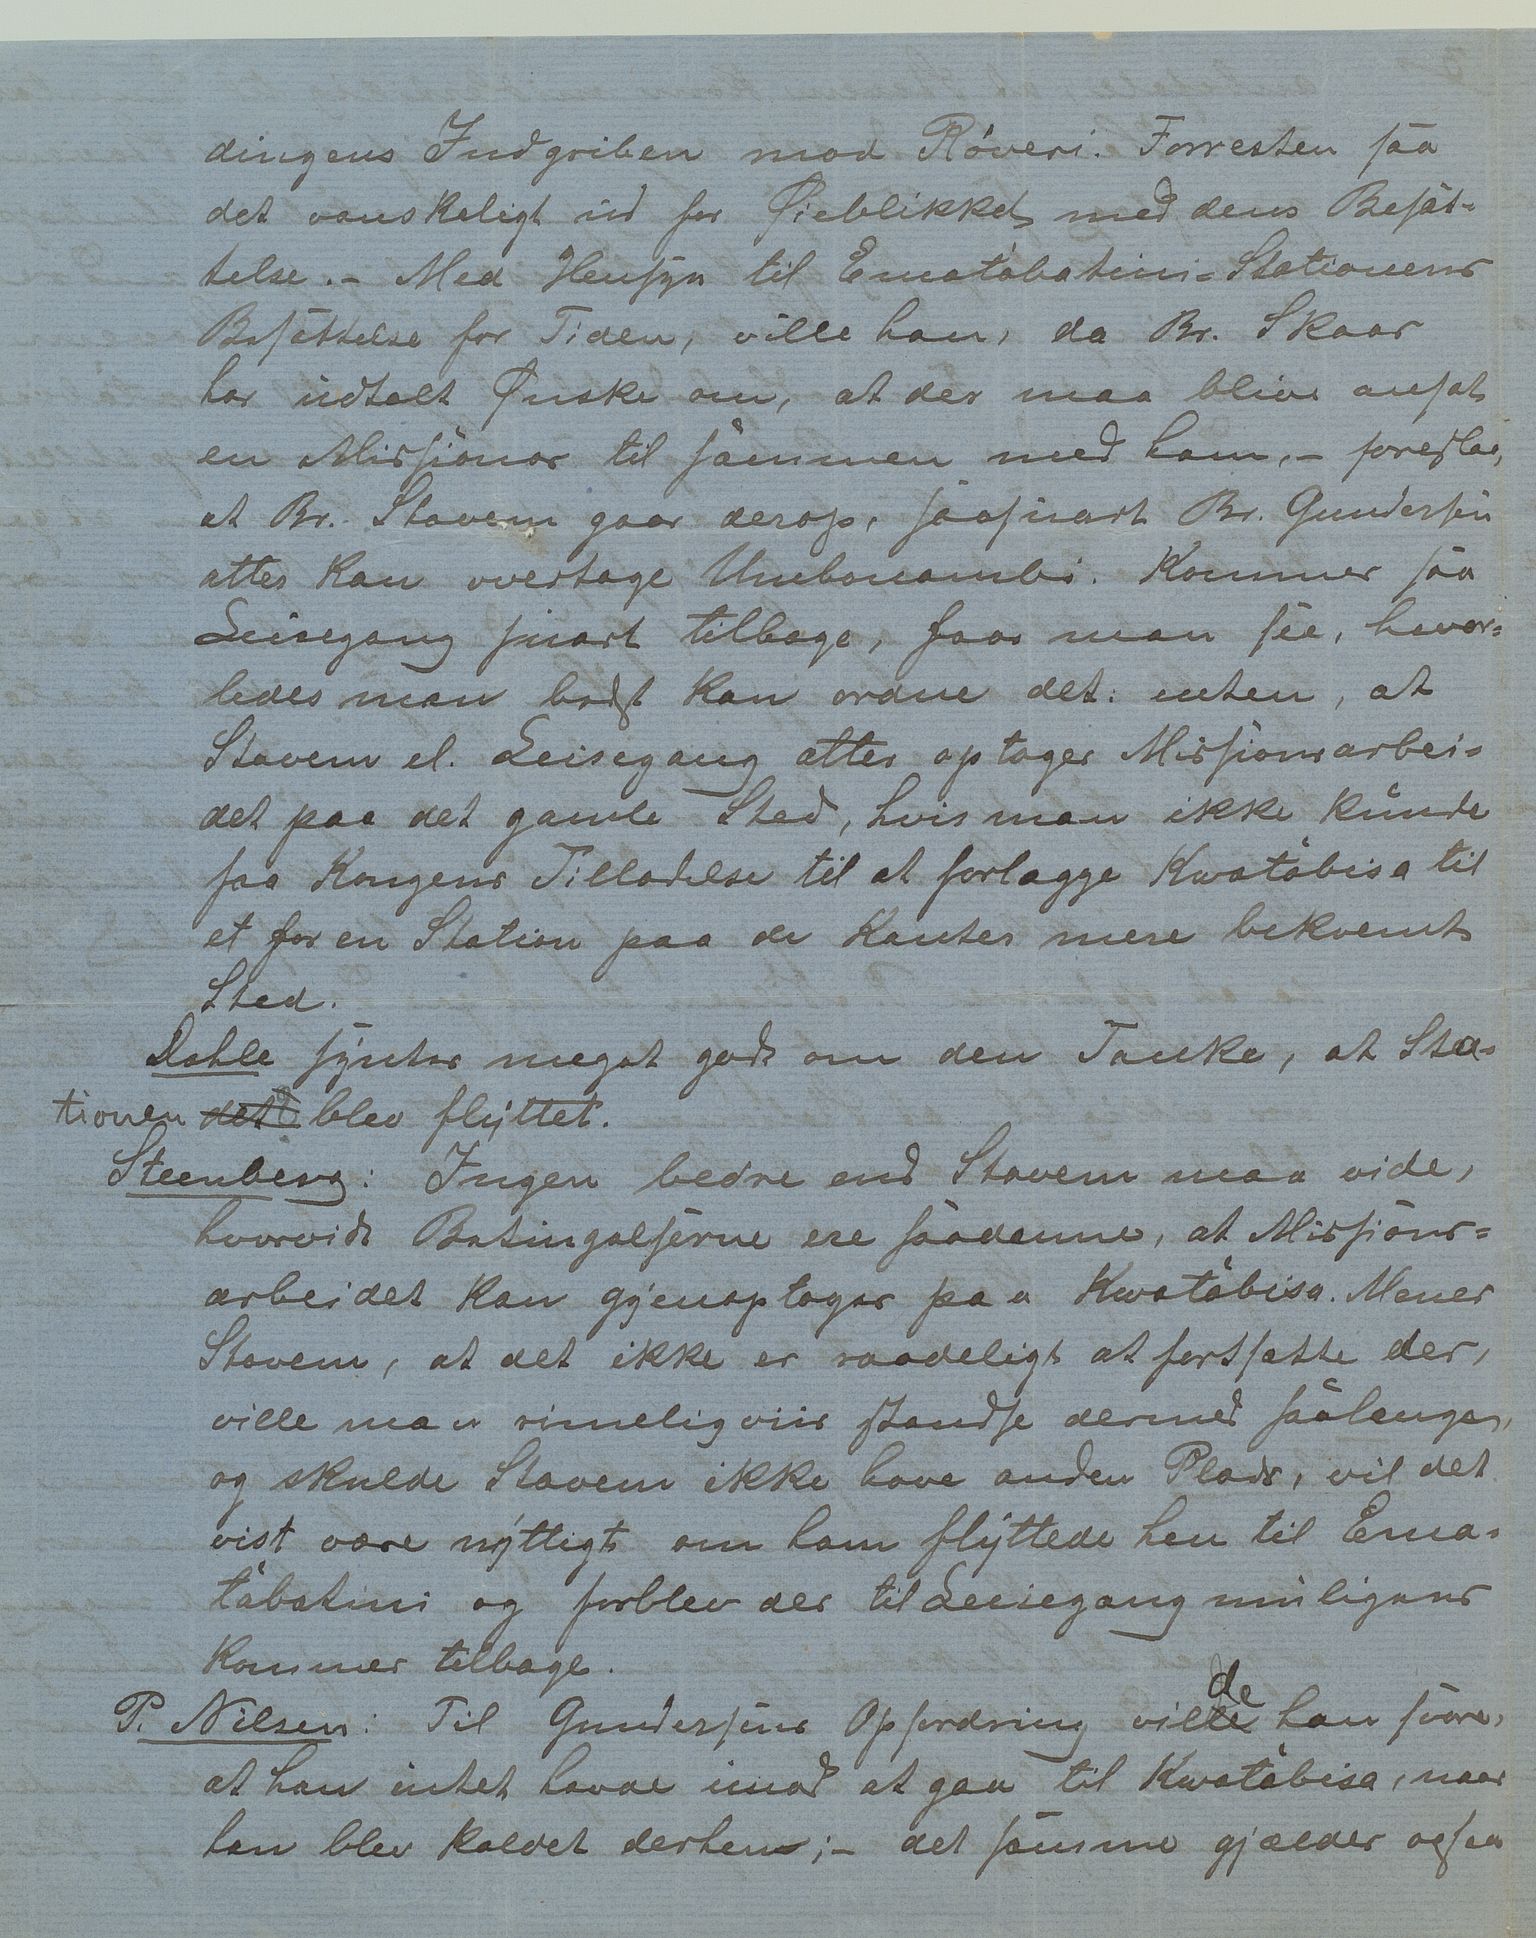 dingens Indgriben mod Röveri. Forresten saa
det vanskeligt ud for Øieblikket med dens Besæt-
telse. – Med Hensyn til Ematabatini-Stationens
Besættelse for Tiden, ville han, da Br. Skaar
har udtalt Ønske om, at der maa blive ansat
en Missionær til sammen med ham, – foreslaa,
at Br. Stavem gaar derop, saasnart Br. Gundersen
atter kan overtage Umbonambi. Kommer saa
Leisegang snart tilbage, faar man see, hvor-
ledes man bedst kan ordne det: enten, at
Stavem el. Leisegang atter optager Missionsarbei-
det paa det gamle Sted, hvis man ikke kunde
faa Kongens Tilladelse til at forlægge Kwatabisa til
et for en Station paa de Kanter mere bekvemt
Sted.
Dahle syntes meget godt om den Tanke, at Sta-
tionen det blev flyttet.
Steenberg: Ingen bedre end Stavem maa vide,
hvorvidt Betingelserne ere saadanne, at Missions-
arbeidet kan gjenoptages paa Kwatabisa. Mener
Stavem, at det ikke er raadeligt at fortsætte der,
ville man rimeligviis standse dermed saalænge,
og skulde Stavem ikke have anden Plads, vil det
vist være nyttigt om ham flyttede hen til Ema-
tabatini og forblev der til Leisegang muligens
kommer tilbage.
P. Nilsen: Til Gundersens Opfordring vilde han svare,
at han intet havde imod at gaa til Kwatabisa, naar
han blev kaldet derhen; – det samme gjælder ogsaa